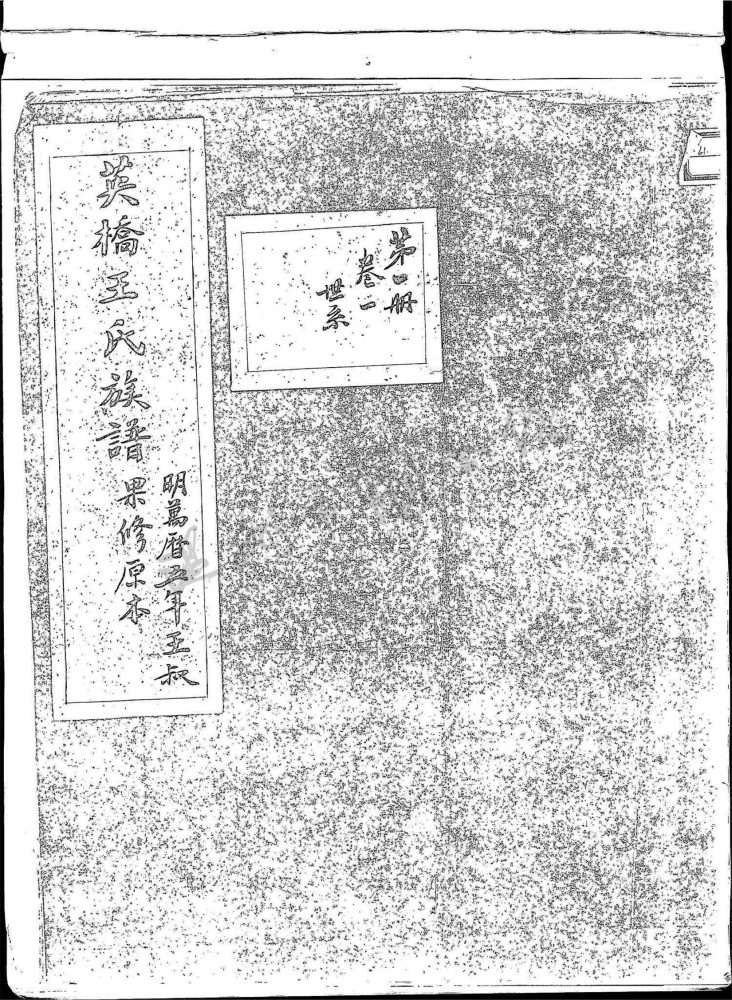 第一册
卷一
世系
英橋王氏族譜
明萬曆五年王叔
果修原本